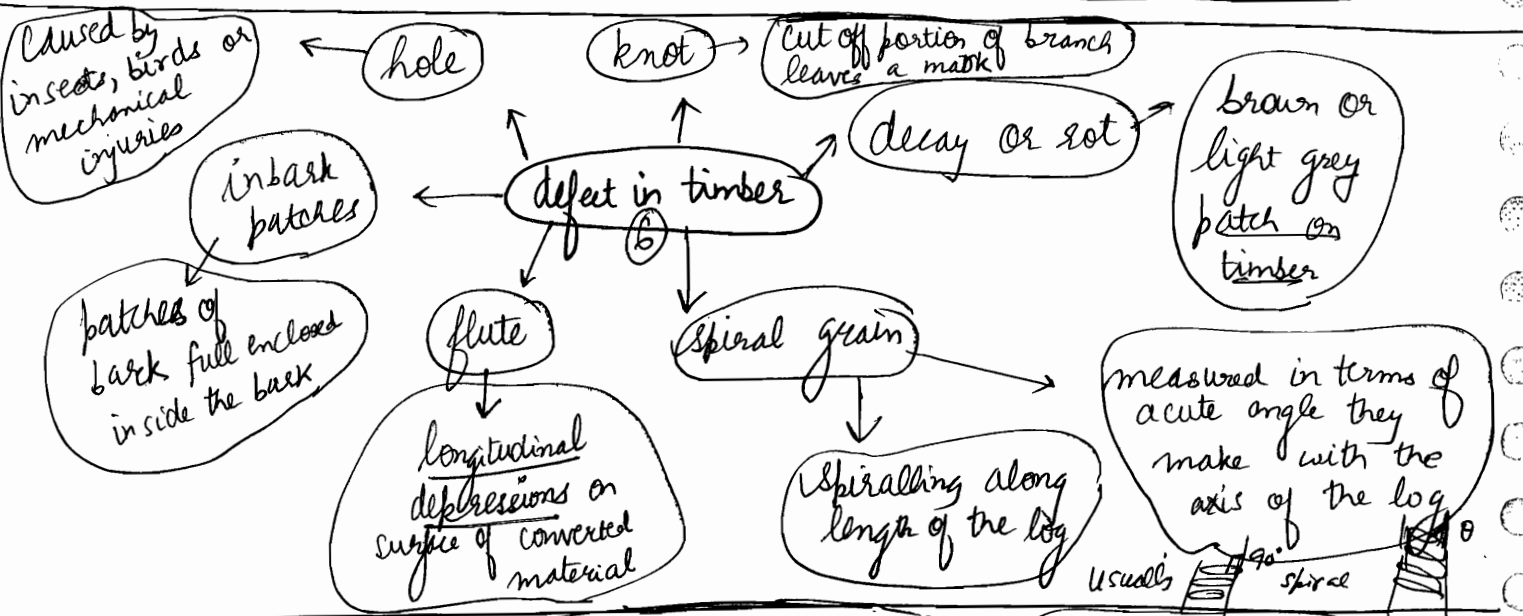 Caused by
insects, birds or
mechanical
injuries
hole
knot
cut off portion of branch
leaves a mark
decay or rot
brown or
light grey
patch on
timber
inbark
patches
defect in timber
6
patches of
bark full enclosed
inside the bark
flute
spiral grain
longitudinal
depressions on
surface of converted
material
spiralling along
length of the log
measured in terms of
acute angle they
make with the
axis of the log
usually
90°
spiral
θ